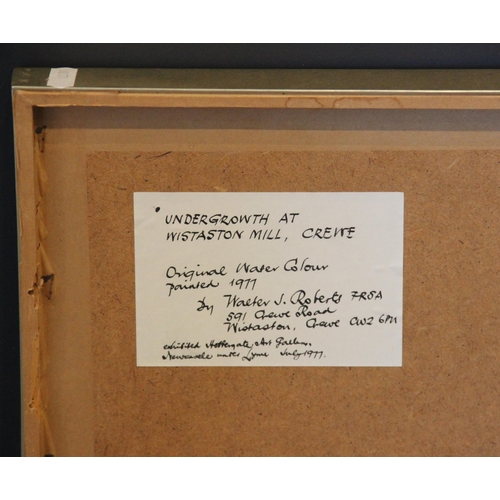 UNDERGROWTH AT
WISTASTON MILL, CREWE
Original Water Colour
painted 1977
by Walter J. Roberts FRSA
591 Crewe Road
Wistaston, Crewe CW2 6PU
exhibited Art Gallery,
Newcastle under Lyme July 1977.